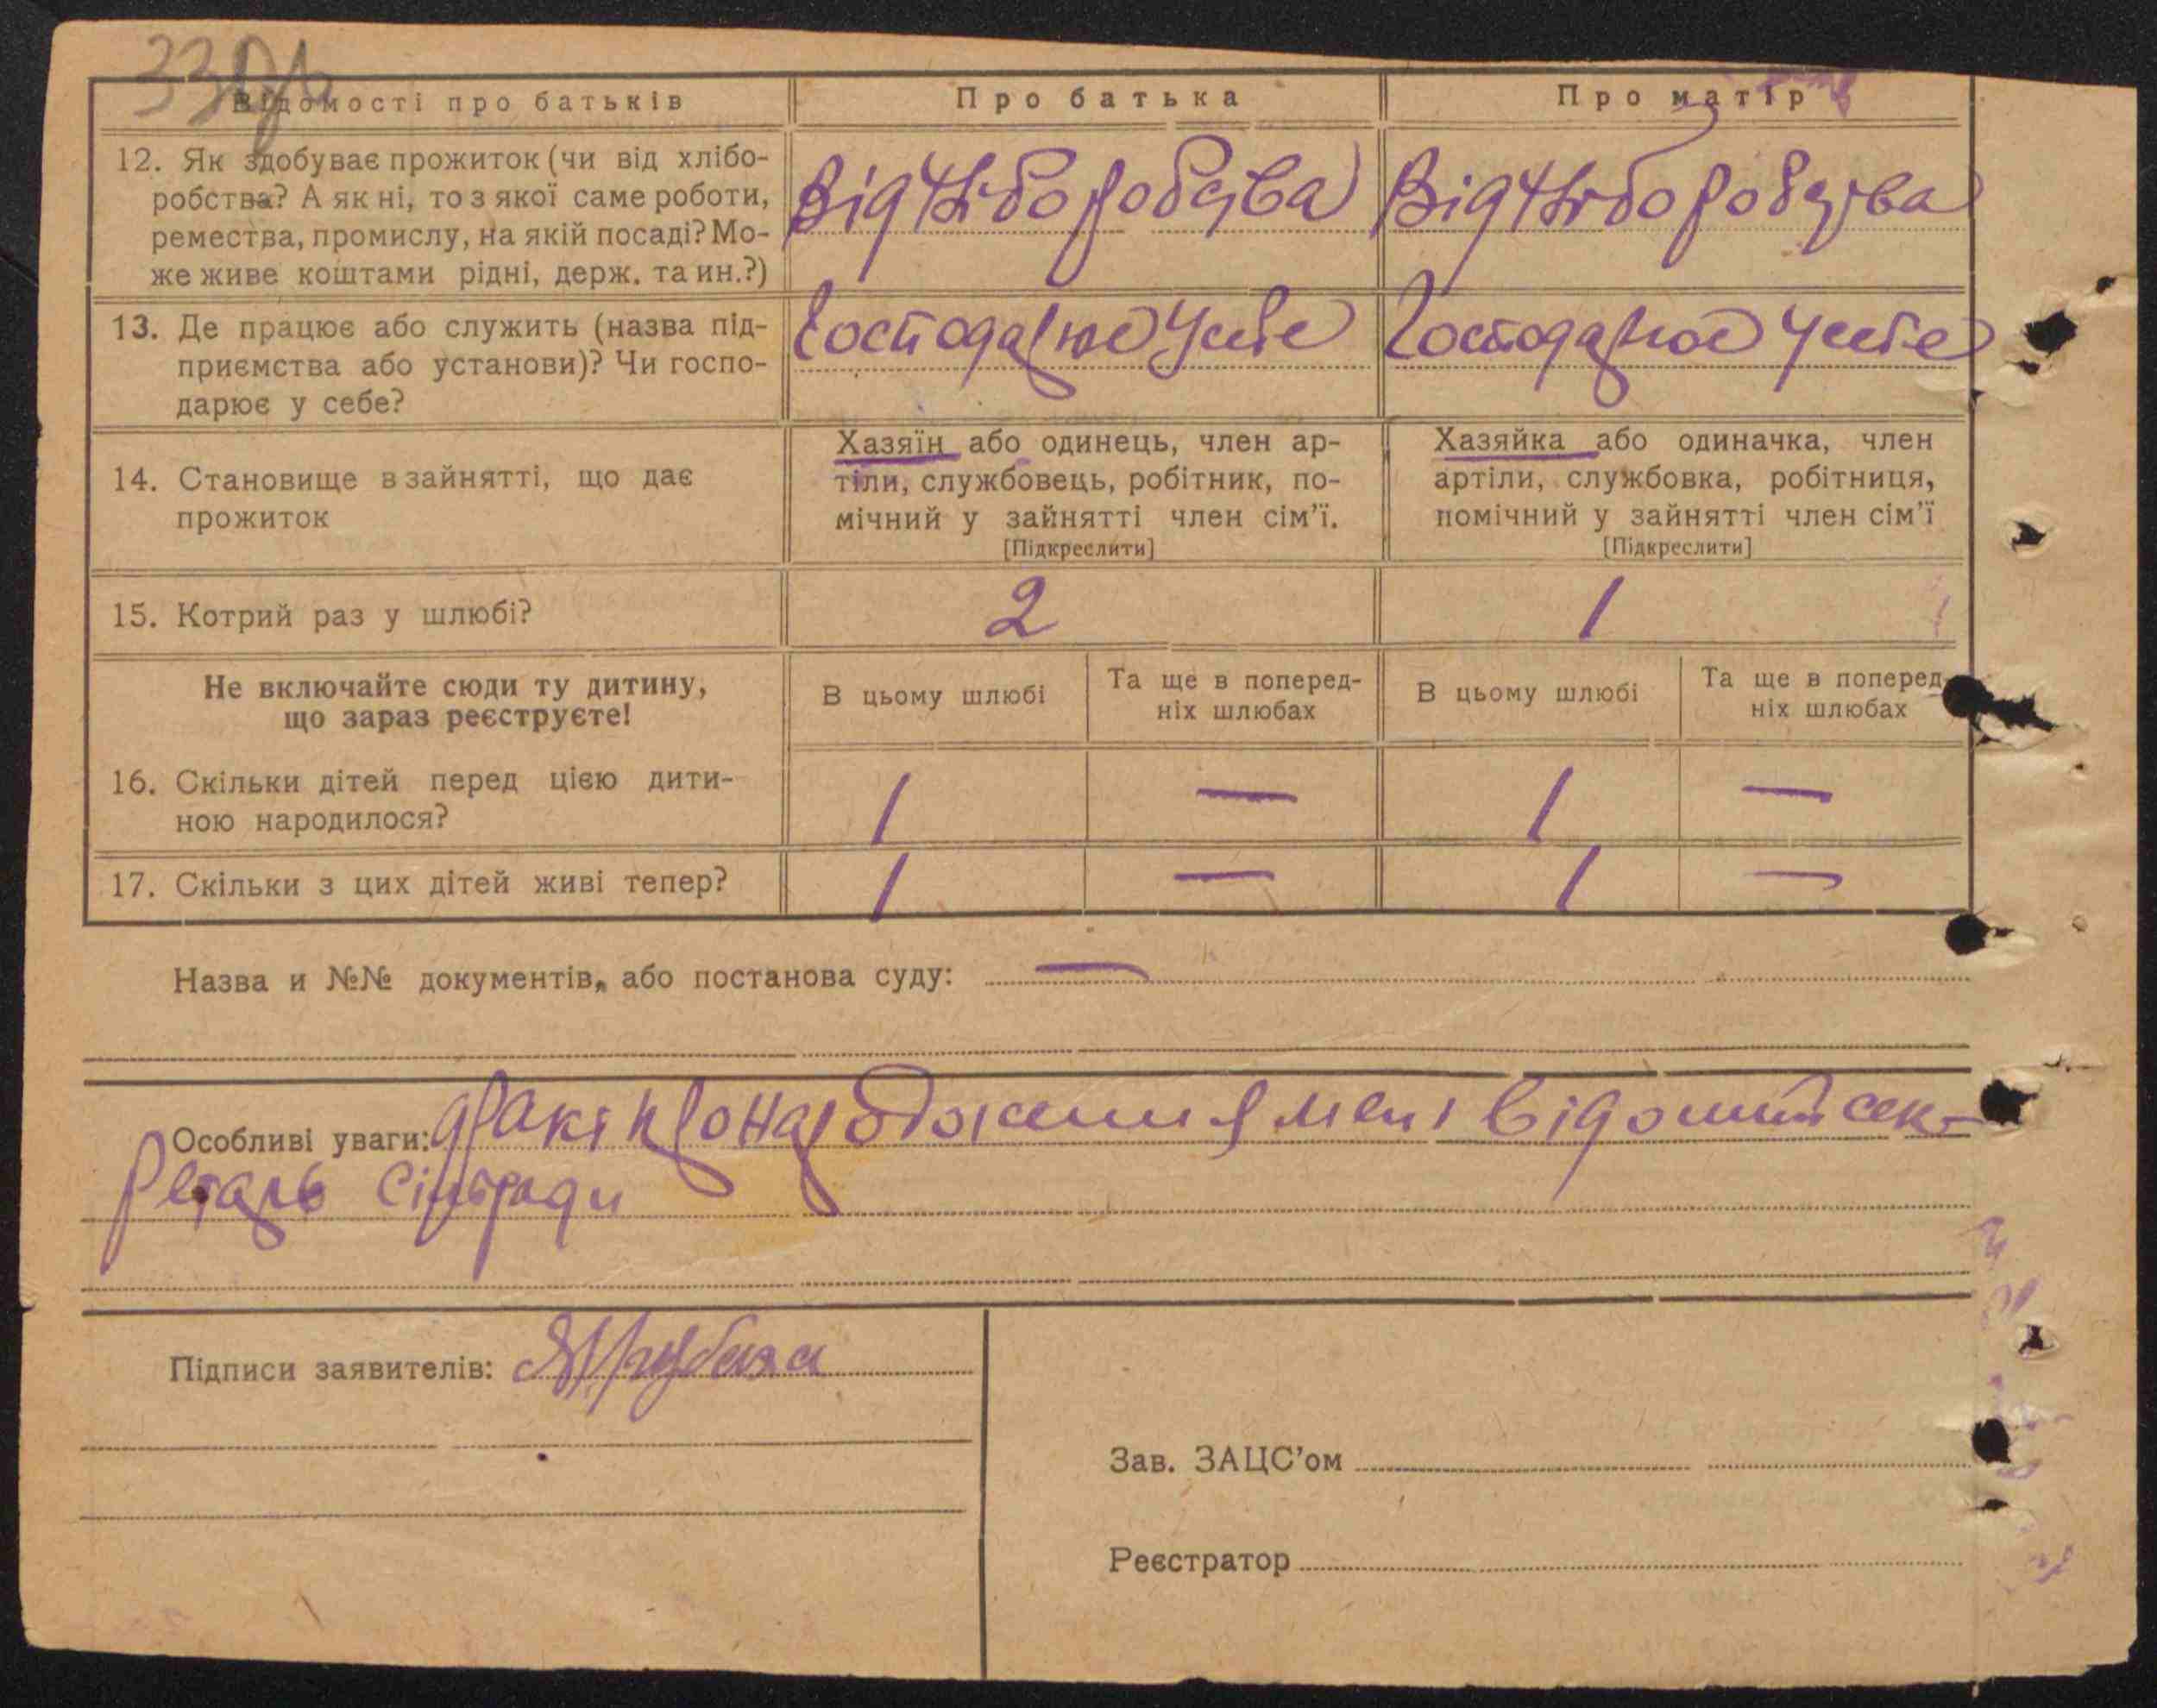 33 зв
Відомості про батьків
Про батька
Про матір
12. Як здобуває прожиток (чи від хлібо-
робства? А як ні, то з якої саме роботи,
ремества, промислу, на якій посаді? Мо-
же живе коштами рідні, держ. та ин.?)
Від хліборобства
Від хліборобства
13. Де працює або служить (назва під-
приємства або установи)? Чи госпо-
дарює у себе?
Господарює У себе
Господарює У себе
14. Становище в зайнятті, що дає
прожиток
Хазяїн або одинець, член ар-
тіли, службовець, робітник, по-
мічний у зайнятті член сім’ї.
[Підкреслити]
Хазяйка або одиначка, член
артіли, службовка, робітниця,
помічний у зайнятті член сім’ї
[Підкреслити]
15. Котрий раз у шлюбі?
2
1
Не включайте сюди ту дитину,
що зараз реєструєте!
В цьому шлюбі
Та ще в поперед-
ніх шлюбах
В цьому шлюбі
Та ще в поперед-
ніх шлюбах
16. Скільки дітей перед цією дити-
ною народилося?
1 — 1 —
17. Скільки з цих дітей живі тепер?
1 — 1 —
Назва и №№ документів, або постанова суду: —
Особливі уваги: факт про народження мені відомий сек-
ретарь сільради
Підписи заявителів:
Зав. ЗАЦС’ом
Реєстратор